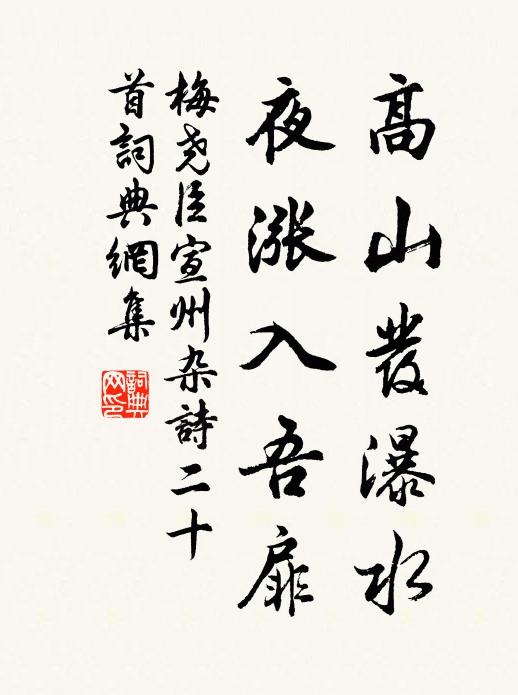 高山發瀑水
夜漲入吾扉
梅尧臣宣州杂詩二十
首詞典網集
詞典
网印